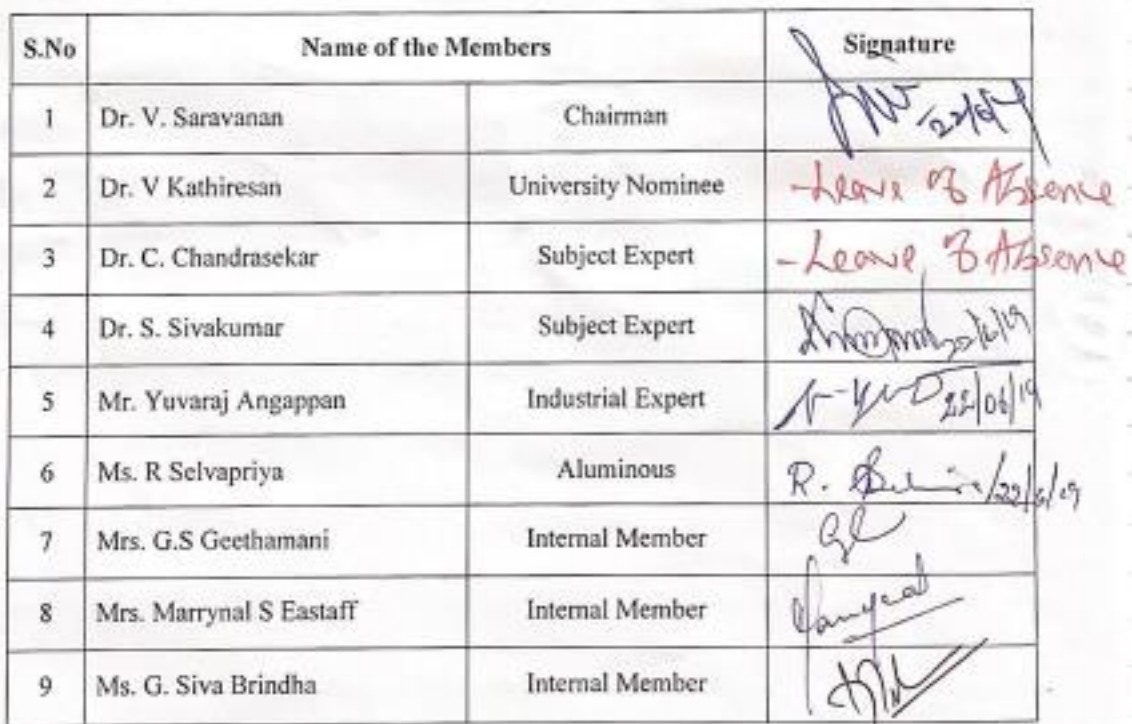 S.No Name of the Members Signature
1 Dr. V. Saravanan Chairman
2 Dr. V Kathiresan University Nominee -Leave of Absence
3 Dr. C. Chandrasekar Subject Expert -Leave of Absence
4 Dr. S. Sivakumar Subject Expert
5 Mr. Yuvaraj Angappan Industrial Expert 22/06/19
6 Ms. R Selvapriya Aluminous R. /22/6/19
7 Mrs. G.S Geethamani Internal Member
8 Mrs. Marrynal S Eastaff Internal Member
9 Ms. G. Siva Brindha Internal Member